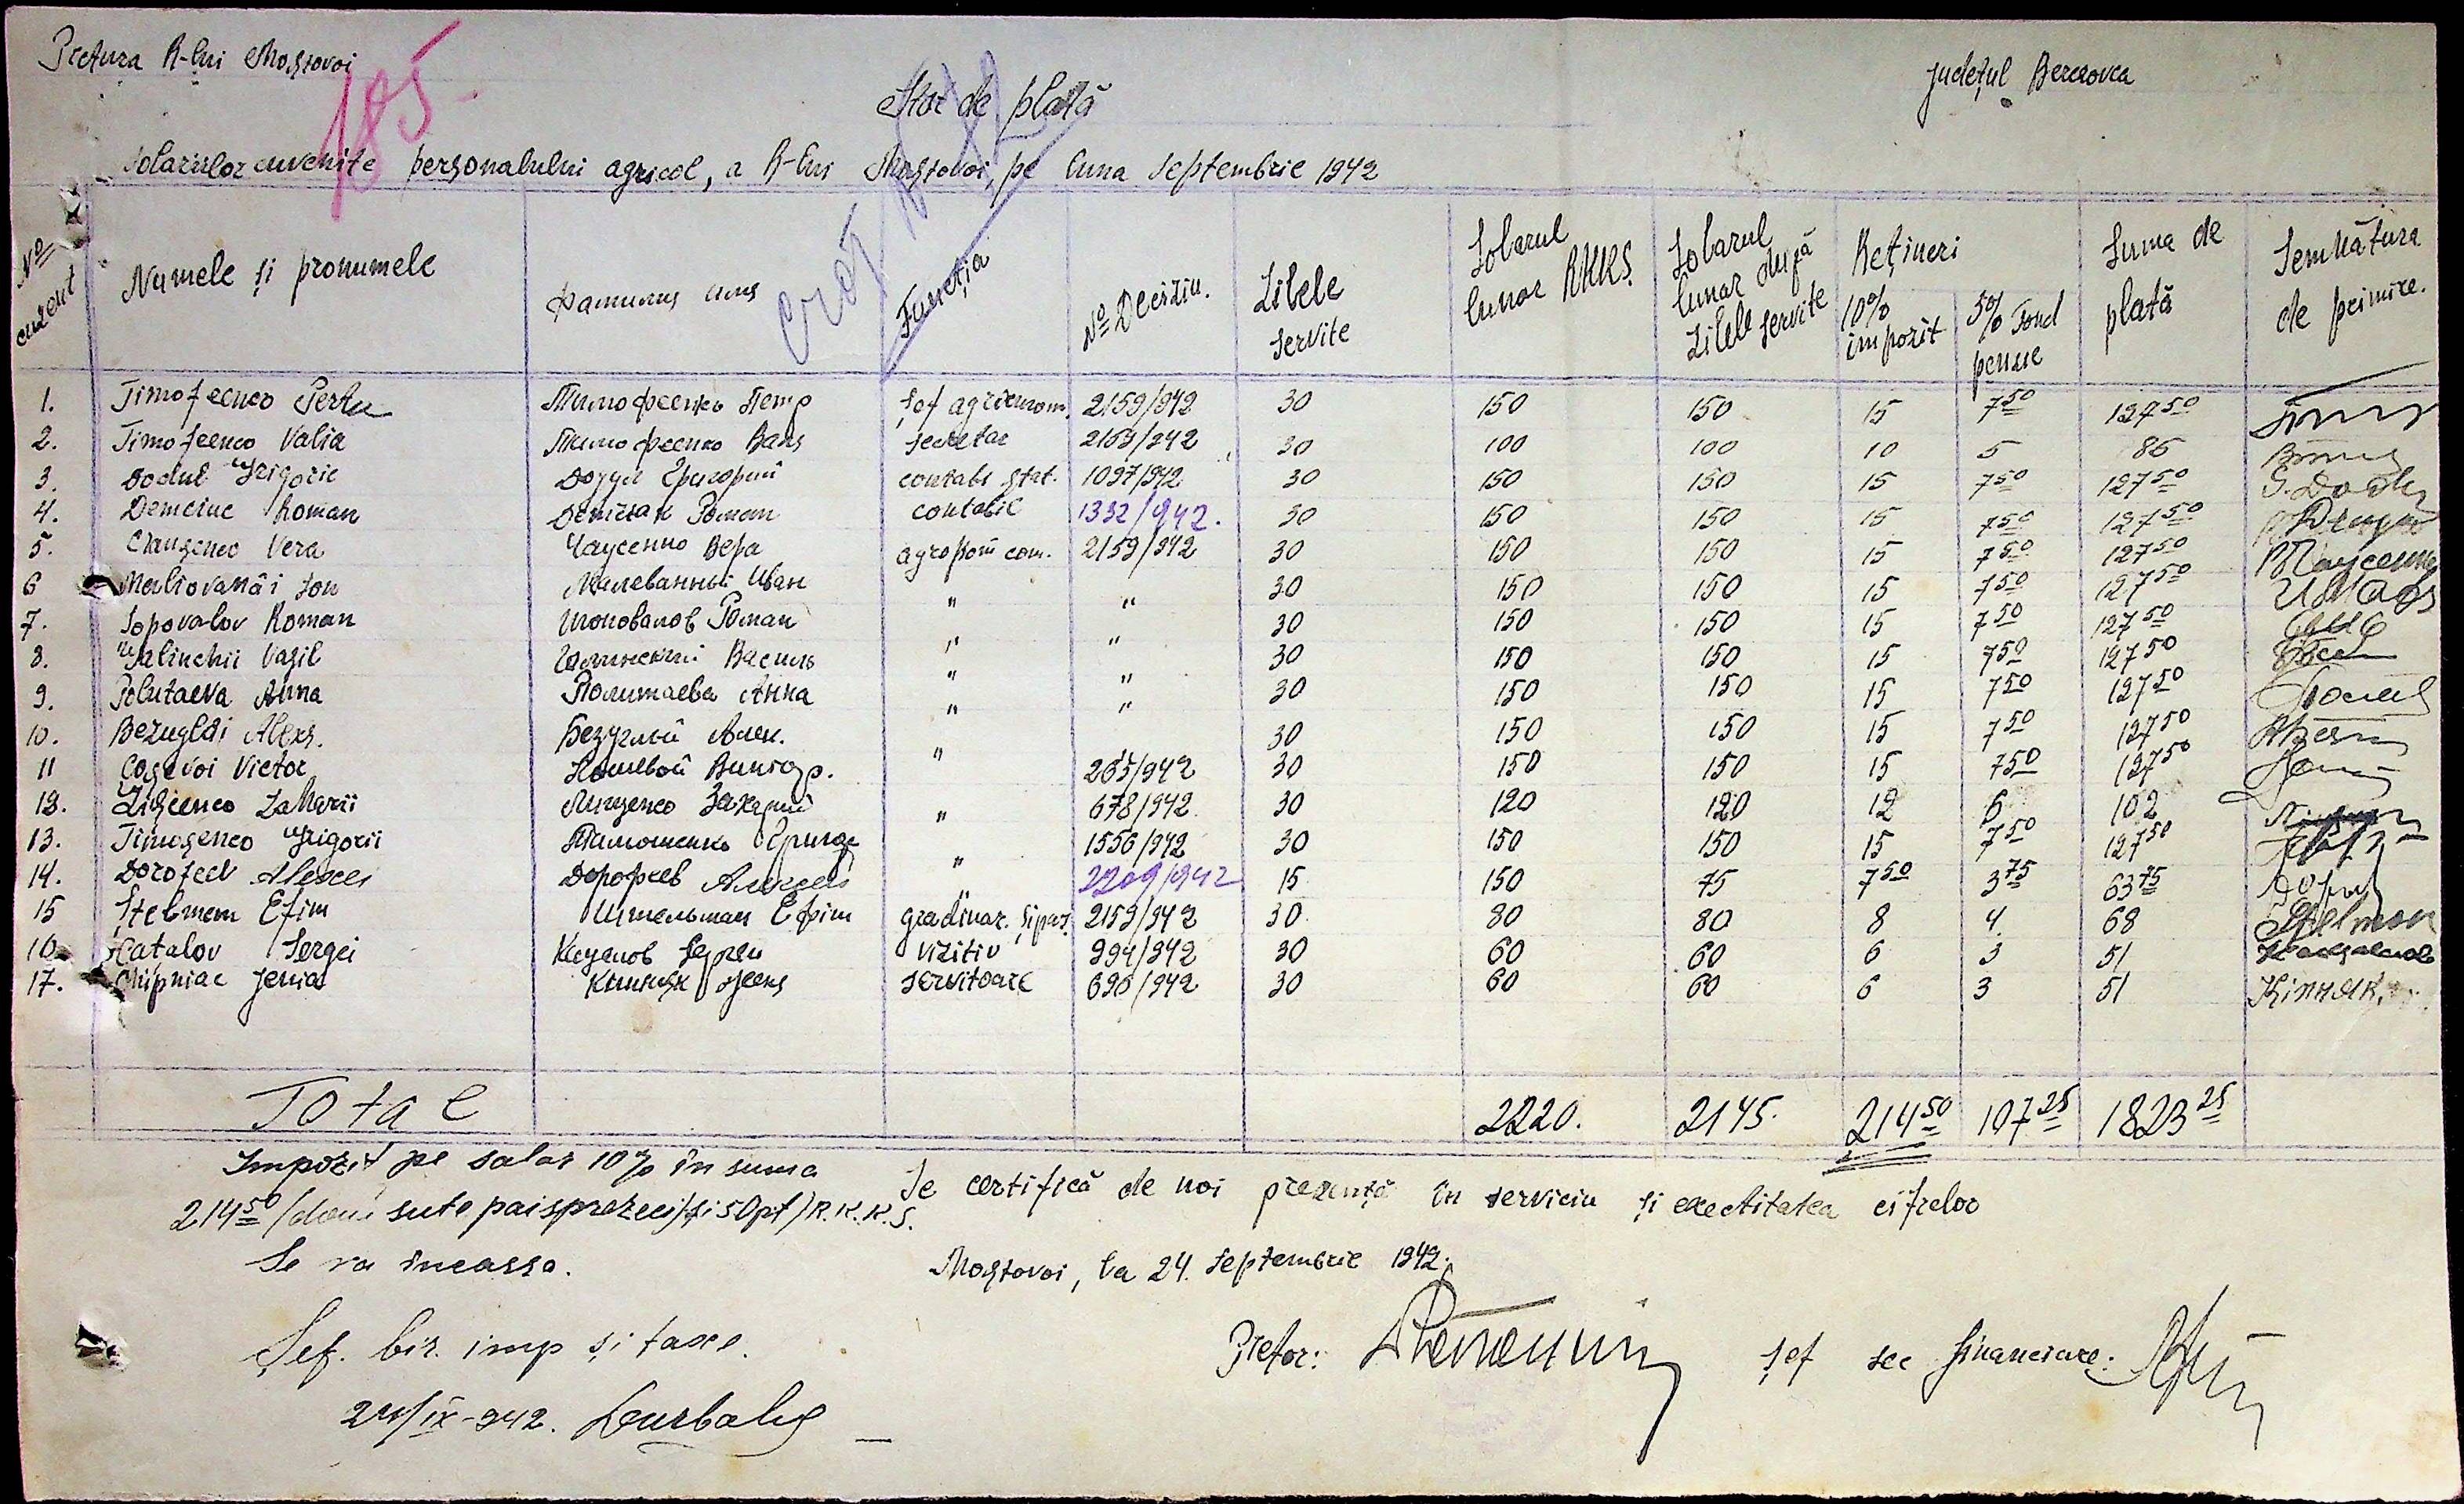 Pretura R-lui Mostovoi
Județul Berezovca
185
Stat de plată
solariilor cuvenite personalului agricol, a R-lui Mostovoi, pe luna septembrie 1942
No curent | Numele și pronumele | Фамилия имя | Funcția | No Deciziu. | Zilele servite | Solarul lunar RKKS. | Solarul lunar după Zilele servite | Rețineri | 10% impozit | 5% Fond pensie | Suma de plată | Semnătura de primire.
1. Timofeenco Petru Тимофеенко Петр șef agronom. 2159/942 30 150 150 15 7 50 127 50
2. Timofeenco Valia Тимофеенко Валя secretar 2159/942 30 100 100 10 5 85
3. Dodul Grigorie Додул Григорий contabl stat. 1097/942 30 150 150 15 7 50 127 50
4. Demciuc Roman Демчак Роман contabil 1332/942. 30 150 150 15 7 50 127 50
5. Ciausenco Vera Чаусенко Вера agronom com. 2159/942 30 150 150 15 7 50 127 50
6 Maliovanâi Ion Малеванный Иван " " 30 150 150 15 7 50 127 50
7. Sopovalov Roman Шоповалов Роман " " 30 150 150 15 7 50 127 50
8. Galinchii Vasil Галинский Василь " " 30 150 150 15 7 50 127 50
9. Polutaeva Anna Политаева Анна " " 30 150 150 15 7 50 127 50
10. Bezuglâi Alexs. Безуглый Алек. " 30 150 150 15 7 50 127 50
11 Coșevoi Victor Кошевой Виктор. 265/942 30 150 150 15 7 50 127 50
12. Lișcenco Zaharii Лищенко Захарий " 678/942 30 120 120 12 6 102
13. Timoșenco Grigorii Тимошенко Григор 1556/942 30 150 150 15 7 50 127 50
14. Dorofeev Alexei Дорофеев Алексей " 2209/942 15 150 75 7 50 3 75 63 75
15 Ștelmem Efim Штельман Ефим gradinar. 2159/942 30 80 80 8 4 68 Stelman
16. Catalov Sergei Каталов Сергей vizitiu 994/942 30 60 60 6 3 51
17. Chipniac Jenia Кипняк Женя servitoare 696/942 30 60 60 6 3 51 Кіпняк
Total 2220. 2145. 214 50 107 25 1823 25
Impozit pe salar 10% în suma
214 50 (două sute paisprezeci și 50 pf) R.K.K.S.
Se va incassa.
Se certifică de noi prezență în serviciu și exectitatea cifrelor
Mostovoi, la 24. septembrie 1942.
Șef. bir. imp și taxe.
24/IX-942.
Pretor:
șef sec financiare: